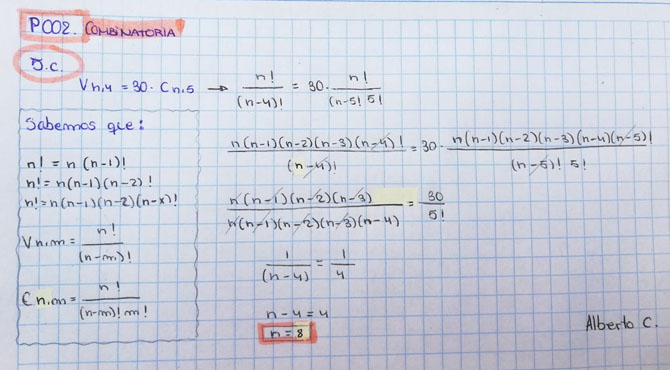 P002. COMBINATORIA
J.c.
Vn,4 = 30 · Cn,5 → n!/(n-4)! = 30 · n!/(n-5! 5!
Sabemos que:
n! = n (n-1)!
n! = n(n-1)(n-2)!
n! = n(n-1)(n-2)(n-x)!
Vn,m = n!/(n-m)!
Cn,m = n!/(n-m)! m!
n(n-1)(n-2)(n-3)(n-4)!/(n-4)! = 30 · n(n-1)(n-2)(n-3)(n-4)(n-5)!/(n-5)! 5!
n(n-1)(n-2)(n-3)/n(n-1)(n-2)(n-3)(n-4) = 30/5!
1/(n-4) = 1/4
n-4 = 4
n = 8
Alberto C.